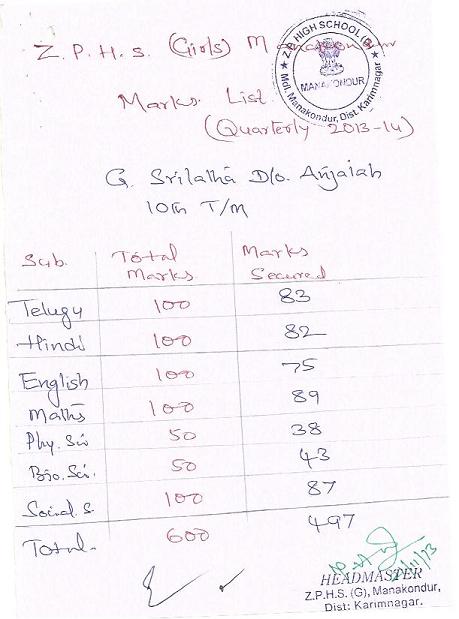 Z.P.H.S. (Girls) Manakondur
Z.P. HIGH SCHOOL (G)
MANAKONDUR
Mdl. Manakondur, Dist. Karimnagar
Marks List
(Quarterly 2013-14)
G. Srilatha D/o. Anjaiah
10th T/M
Sub. Total Marks Marks Secured
Telugu 100 83
Hindi 100 82
English 100 75
Maths 100 89
Phy. Sci 50 38
Bio. Sci. 50 43
Social. S. 100 87
Total. 600 497
HEADMASTER
Z.P.H.S. (G), Manakondur,
Dist: Karimnagar.